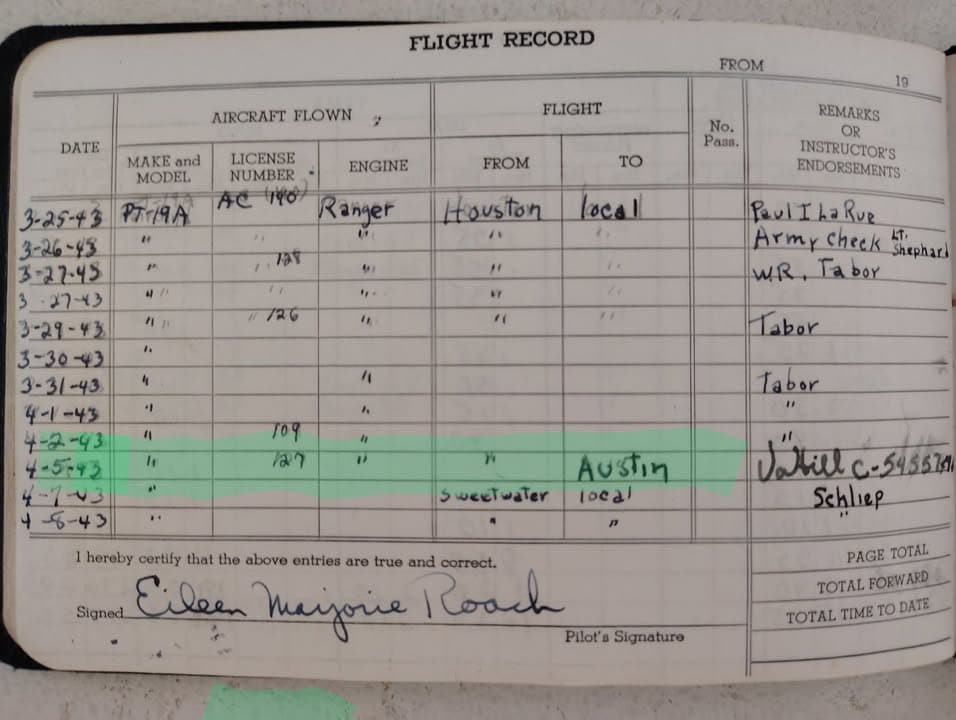 FLIGHT RECORD
FROM 19
DATE
AIRCRAFT FLOWN
FLIGHT
No. Pass.
REMARKS OR INSTRUCTOR'S ENDORSEMENTS
MAKE and MODEL
LICENSE NUMBER
ENGINE
FROM
TO
3-25-43 PT-19A AC 190 Ranger Houston local Paul I LaRue
3-26-43 " " " " " Army check Lt. Shephard
3-27-43 " " 128 " " " W.R. Tabor
3-27-43 " " " " " "
3-29-43 " " " 126 " " " Tabor
3-30-43 "
3-31-43 " " Tabor
4-1-43 " " "
4-2-43 " 109 " "
4-5-43 " 127 " " Austin
4-7-43 " Sweetwater local Schliep
4-8-43 " " " "
I hereby certify that the above entries are true and correct.
PAGE TOTAL
TOTAL FORWARD
TOTAL TIME TO DATE
Signed Eileen Marjorie Roach
Pilot's Signature